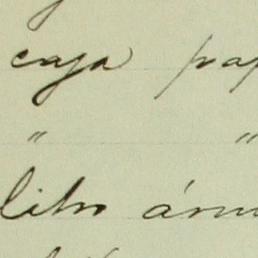 caja pap
" "
litro ánu